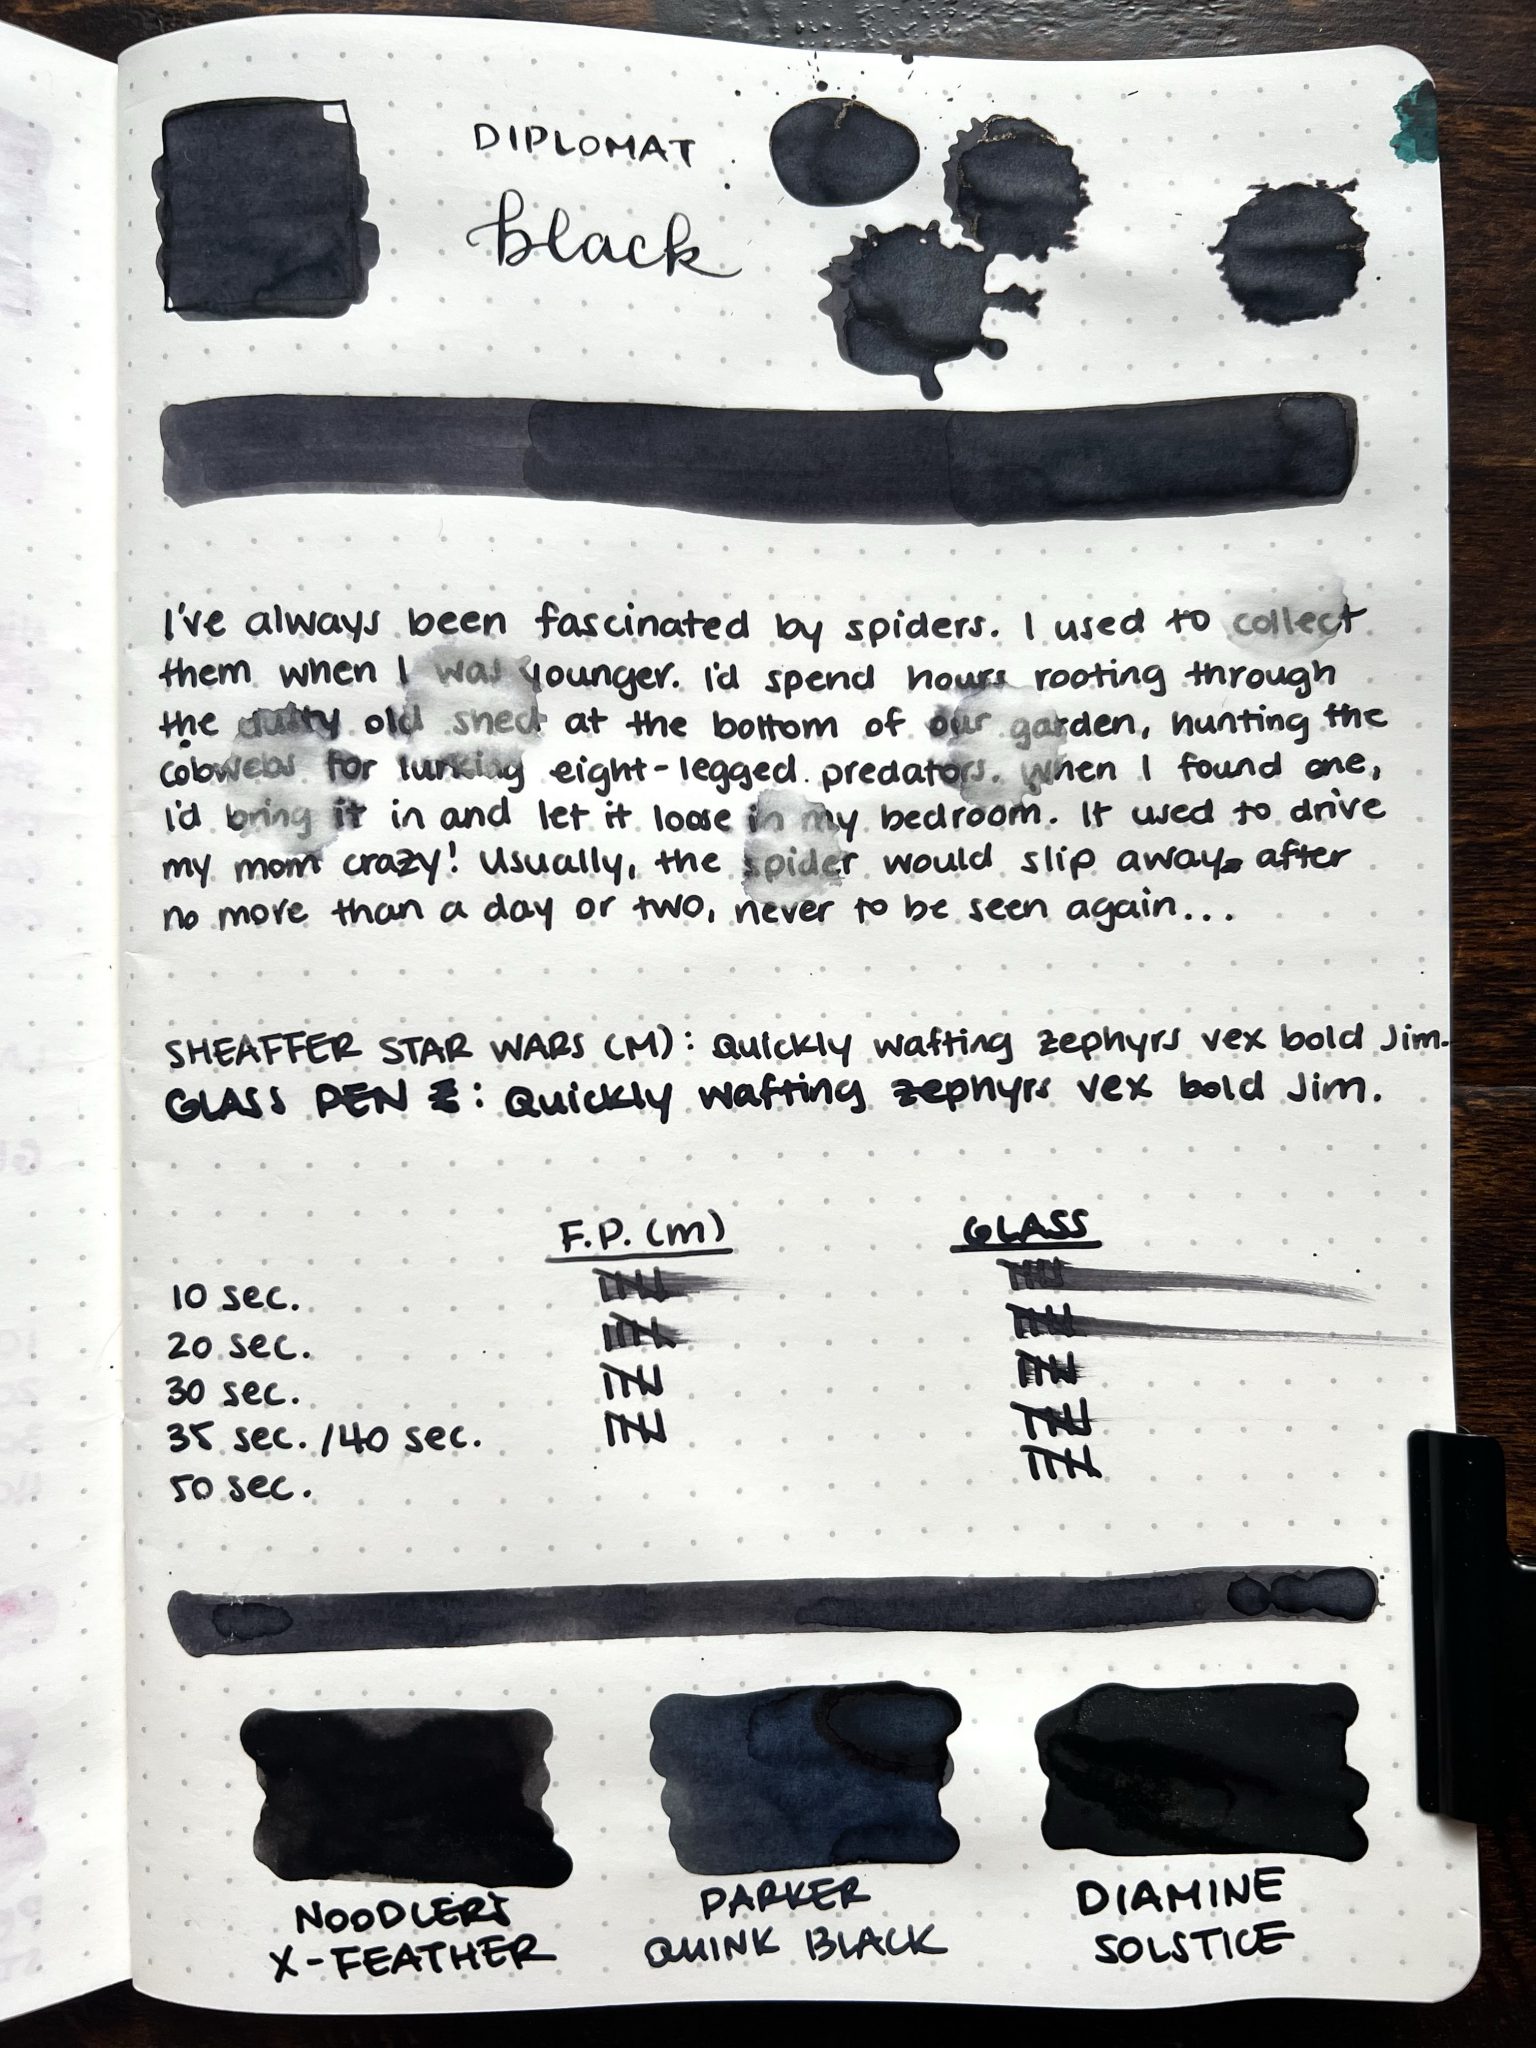 DIPLOMAT
black
I've always been fascinated by spiders. I used to collect
them when I was younger. I'd spend hours rooting through
the dusty old shed at the bottom of our garden, hunting the
cobwebs for lurking eight-legged predators. When I found one,
I'd bring it in and let it loose in my bedroom. It used to drive
my mom crazy! Usually, the spider would slip away after
no more than a day or two, never to be seen again...
SHEAFFER STAR WARS (M): Quickly wafting zephyrs vex bold Jim.
GLASS PEN : Quickly wafting zephyrs vex bold Jim.
F.P. (M) GLASS
10 sec.
20 sec.
30 sec.
35 sec. /40 sec.
50 sec.
NOODLER'S
X-FEATHER
PARKER
QUINK BLACK
DIAMINE
SOLSTICE